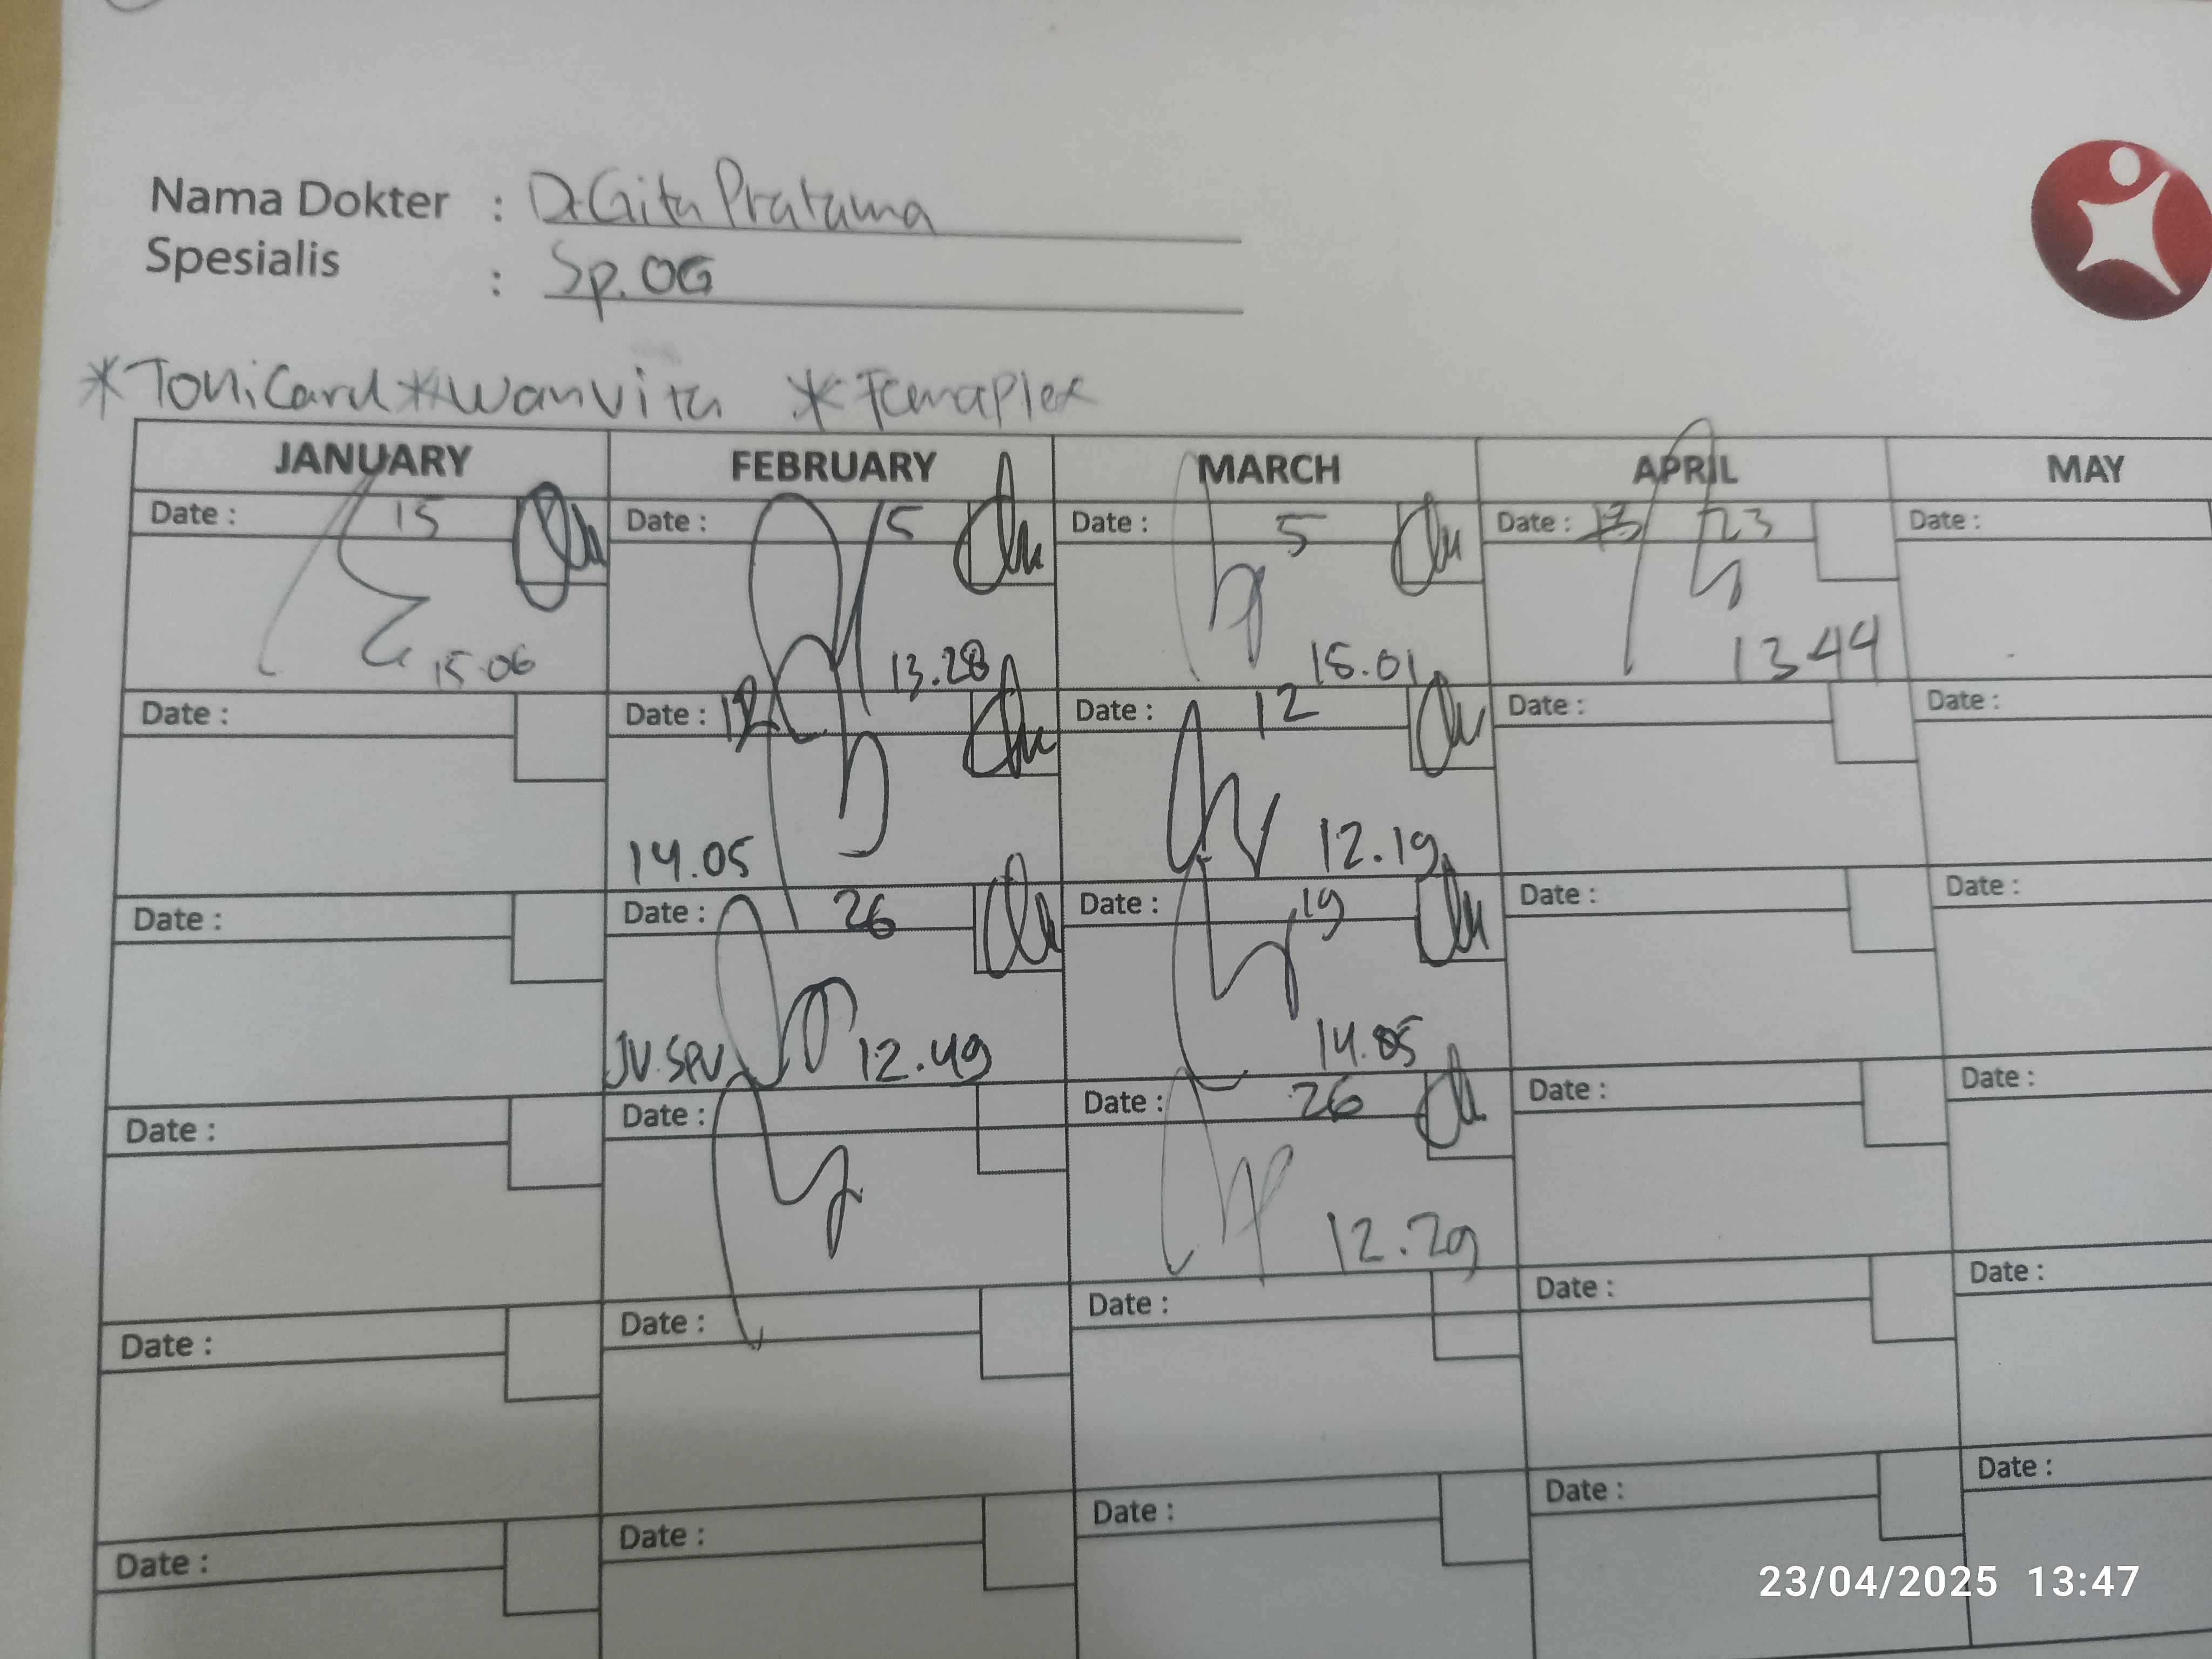 Nama Dokter : Dr Gita Pratama
Spesialis : Sp. OG
*Tonicard *Wanvita *Femaplex
JANUARY FEBRUARY MARCH APRIL MAY
Date : 15 Date : 5 Date : 5 Date : 23 Date :
15.06 13.28 15.01 13.44
Date : Date : 12 Date : 12 Date : Date :
14.05 12.19
Date : Date : 26 Date : 19 Date : Date :
JV.SPV 12.49 14.05
Date : Date : Date : 26 Date : Date :
12.29
Date : Date : Date : Date : Date :
Date : Date : Date : Date : Date :
23/04/2025 13:47